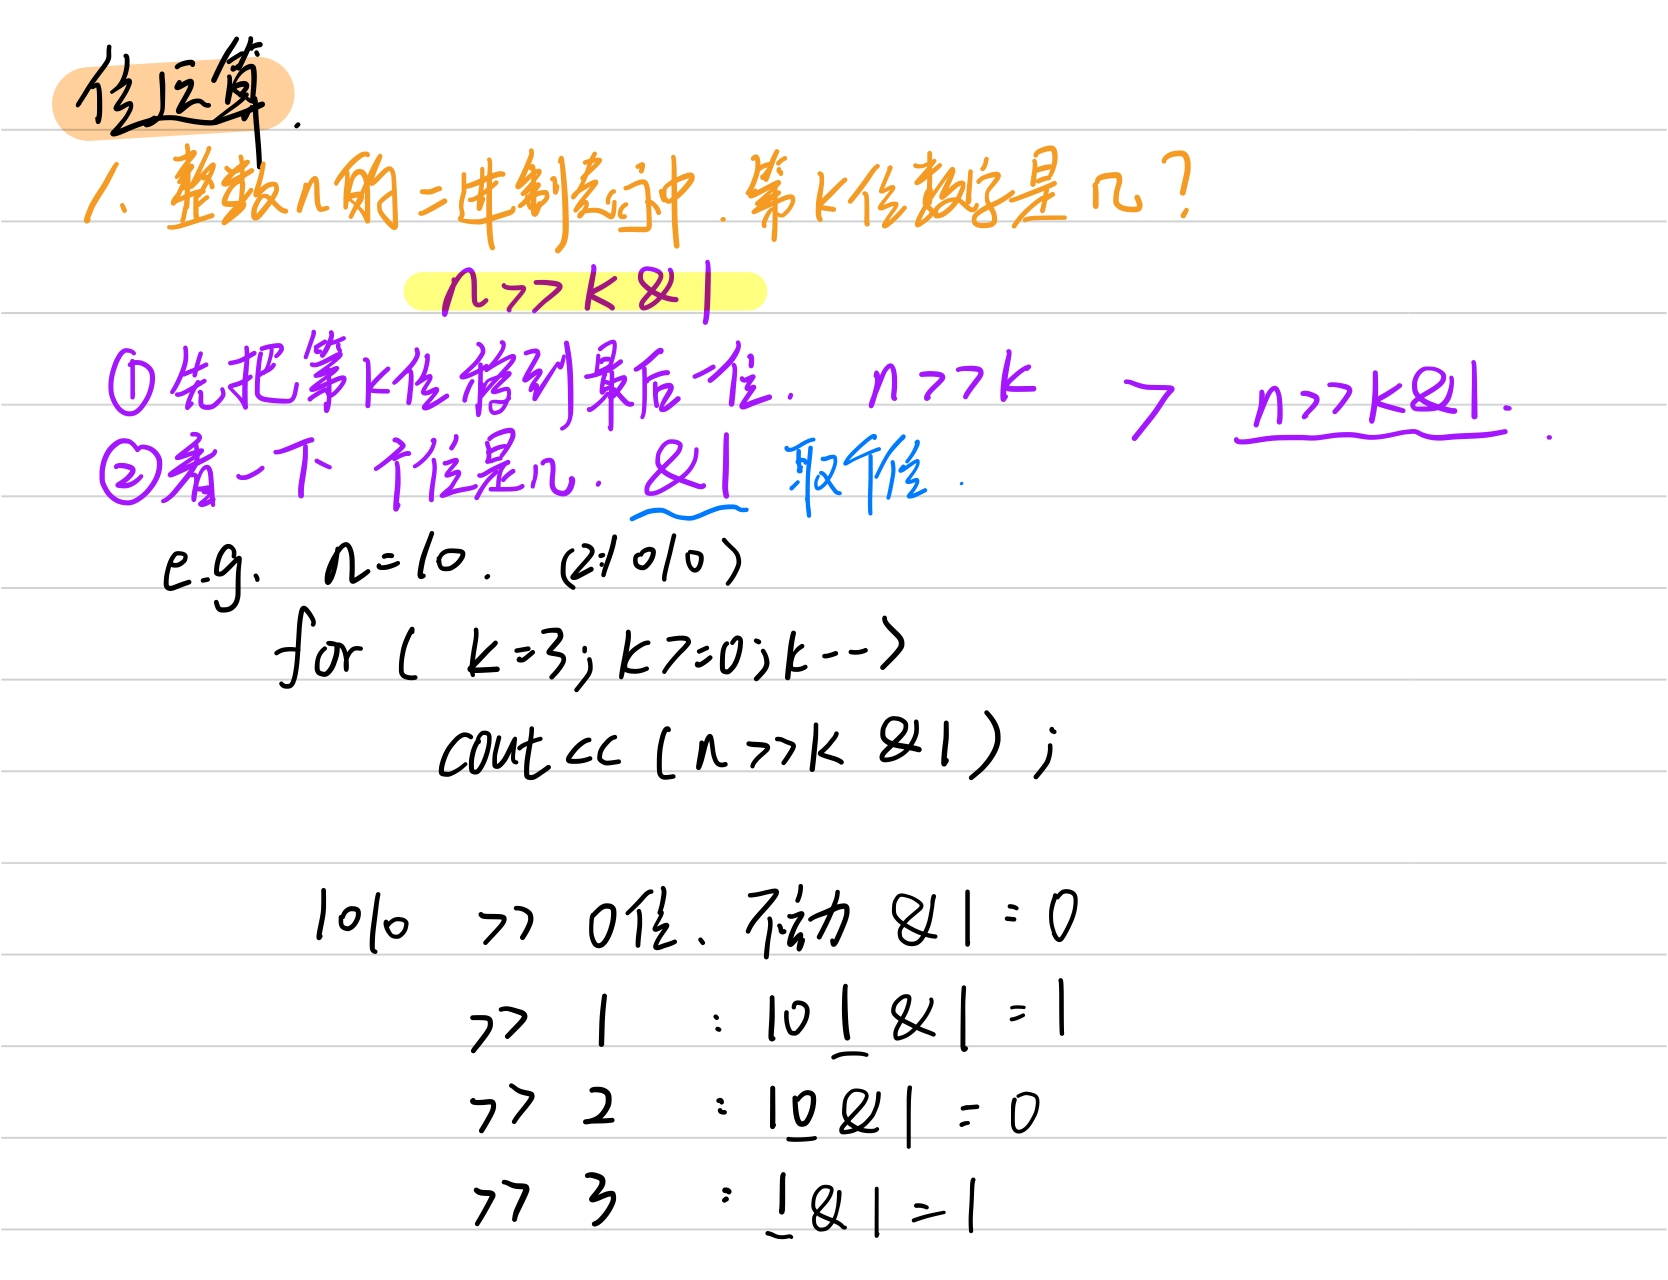 位运算.
1、整数n的二进制表示中.第k位数字是几?
n>>k&1
①先把第k位移到最后一位. n>>k > n>>k&1.
②看一下个位是几. &1 取个位.
e.g. n=10. (2:1010)
for ( k=3; k>=0; k--)
cout << (n>>k &1) ;
1010 >> 0位、不动 &1 = 0
>> 1 : 101 &1 = 1
>> 2 : 10 &1 = 0
>> 3 : 1 &1 = 1